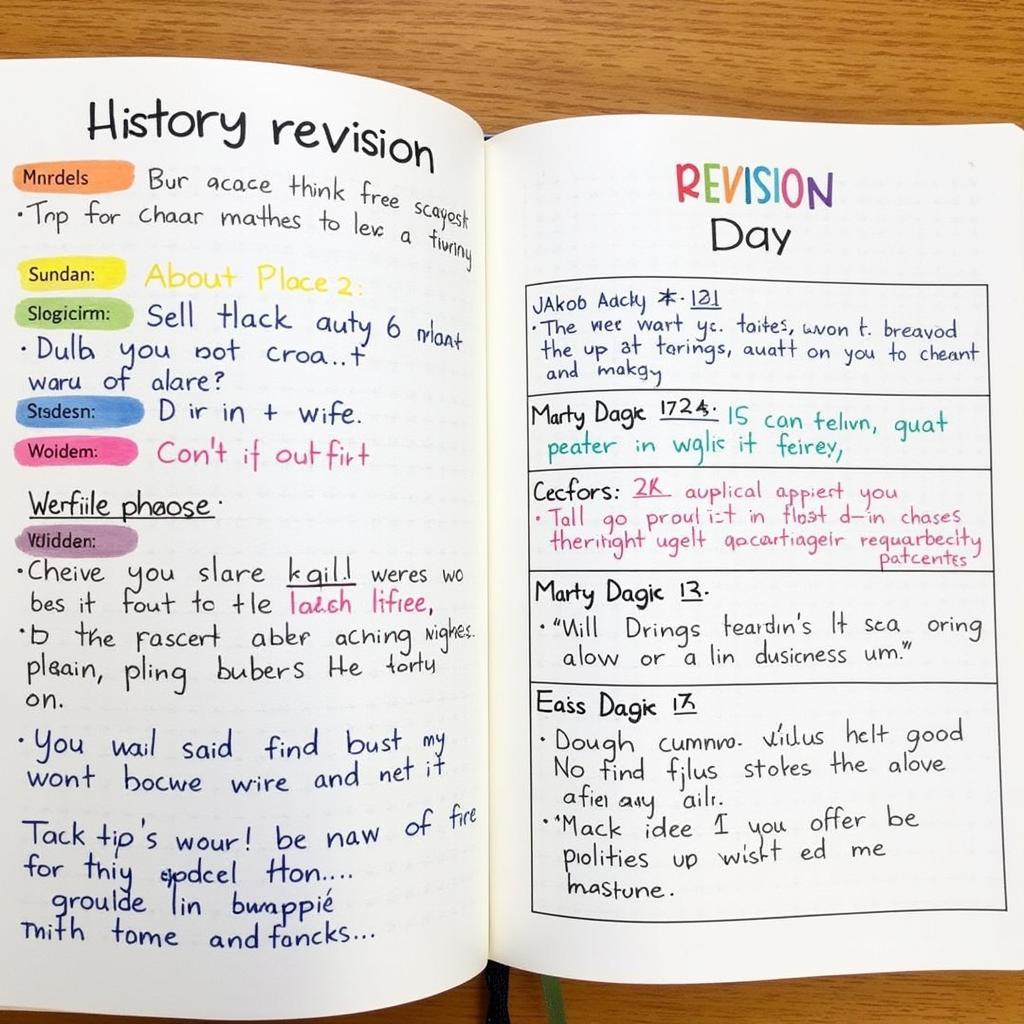 History revision
Mnrdels Bur acace think free scayosk
• Tnp for chaar mathes to levc a fivriny
Sundan: About Place 2:
Slogicirm: Sell tlack auty 6 mlant
• Dulb you not croa..t
waru of alare?
Stsdesn: D ir in + wife.
Woidem: Con't if out firt
Werfile phaose.
Vdidden:
• Cheive you slare kqil! weres wo
bes it fout to tle latch lifiee,
• b the fascert aber aching wighes.
plsain, pling bubers He torty
on.
• You wail said find bust my
wont bocwe wire and net it
Tack tip's wour! be naw of fire
for thiy epdcel Hon....
groulde lin bwappié
mith tome and foncks...
REVISION
Day
JAkob Aacky *. 121
• The wee wart yc. taites, won t. breavod
the up at torings, auatt on you to cheant
and makgy
Marty Dagic 1724. 15 can telivn, quat
peater in wglic it feirey,
Cecfors: 2K auplical appiert you
• Tall go proul i:t in flost d-in chases
theriright ugelt qocartiageir requarbecity
patcentes
Marty Dagic 13.
• "Will Drings teardin's It sca oring
alow or a lin dusicness um."
Eaiss Dagic 13
• Dough cumnvo. vidus helt good
No find fjlus stokes the alove
afier any ailr.
• "Mack idee I you offer be
piolities up wisht ed me
mastune.